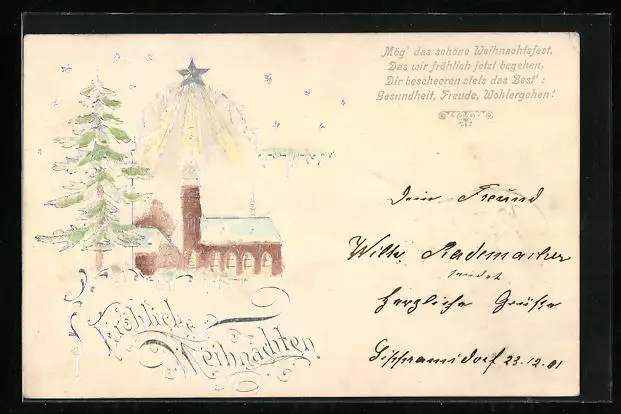 Mög' das schöne Weihnachtsfest,
Das wir fröhlich jetzt begehen,
Dir bescheeren stets das Best':
Gesundheit, Freude, Wohlergehen!
Dein Freund
Willy Rademacher
sendet
herzliche Grüße
23.12.01
Fröhliche
Weihnachten